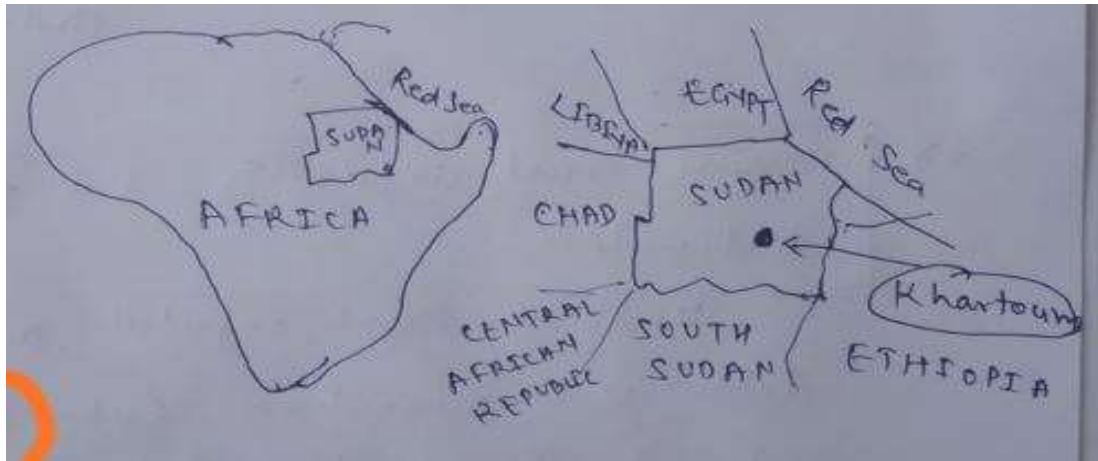 Red Sea
SUDA
N
AFRICA
LIBIYA
EGYPT
Red Sea
CHAD
SUDAN
Khartoum
CENTRAL
AFRICAN
REPUBLIC
SOUTH
SUDAN
ETHIOPIA